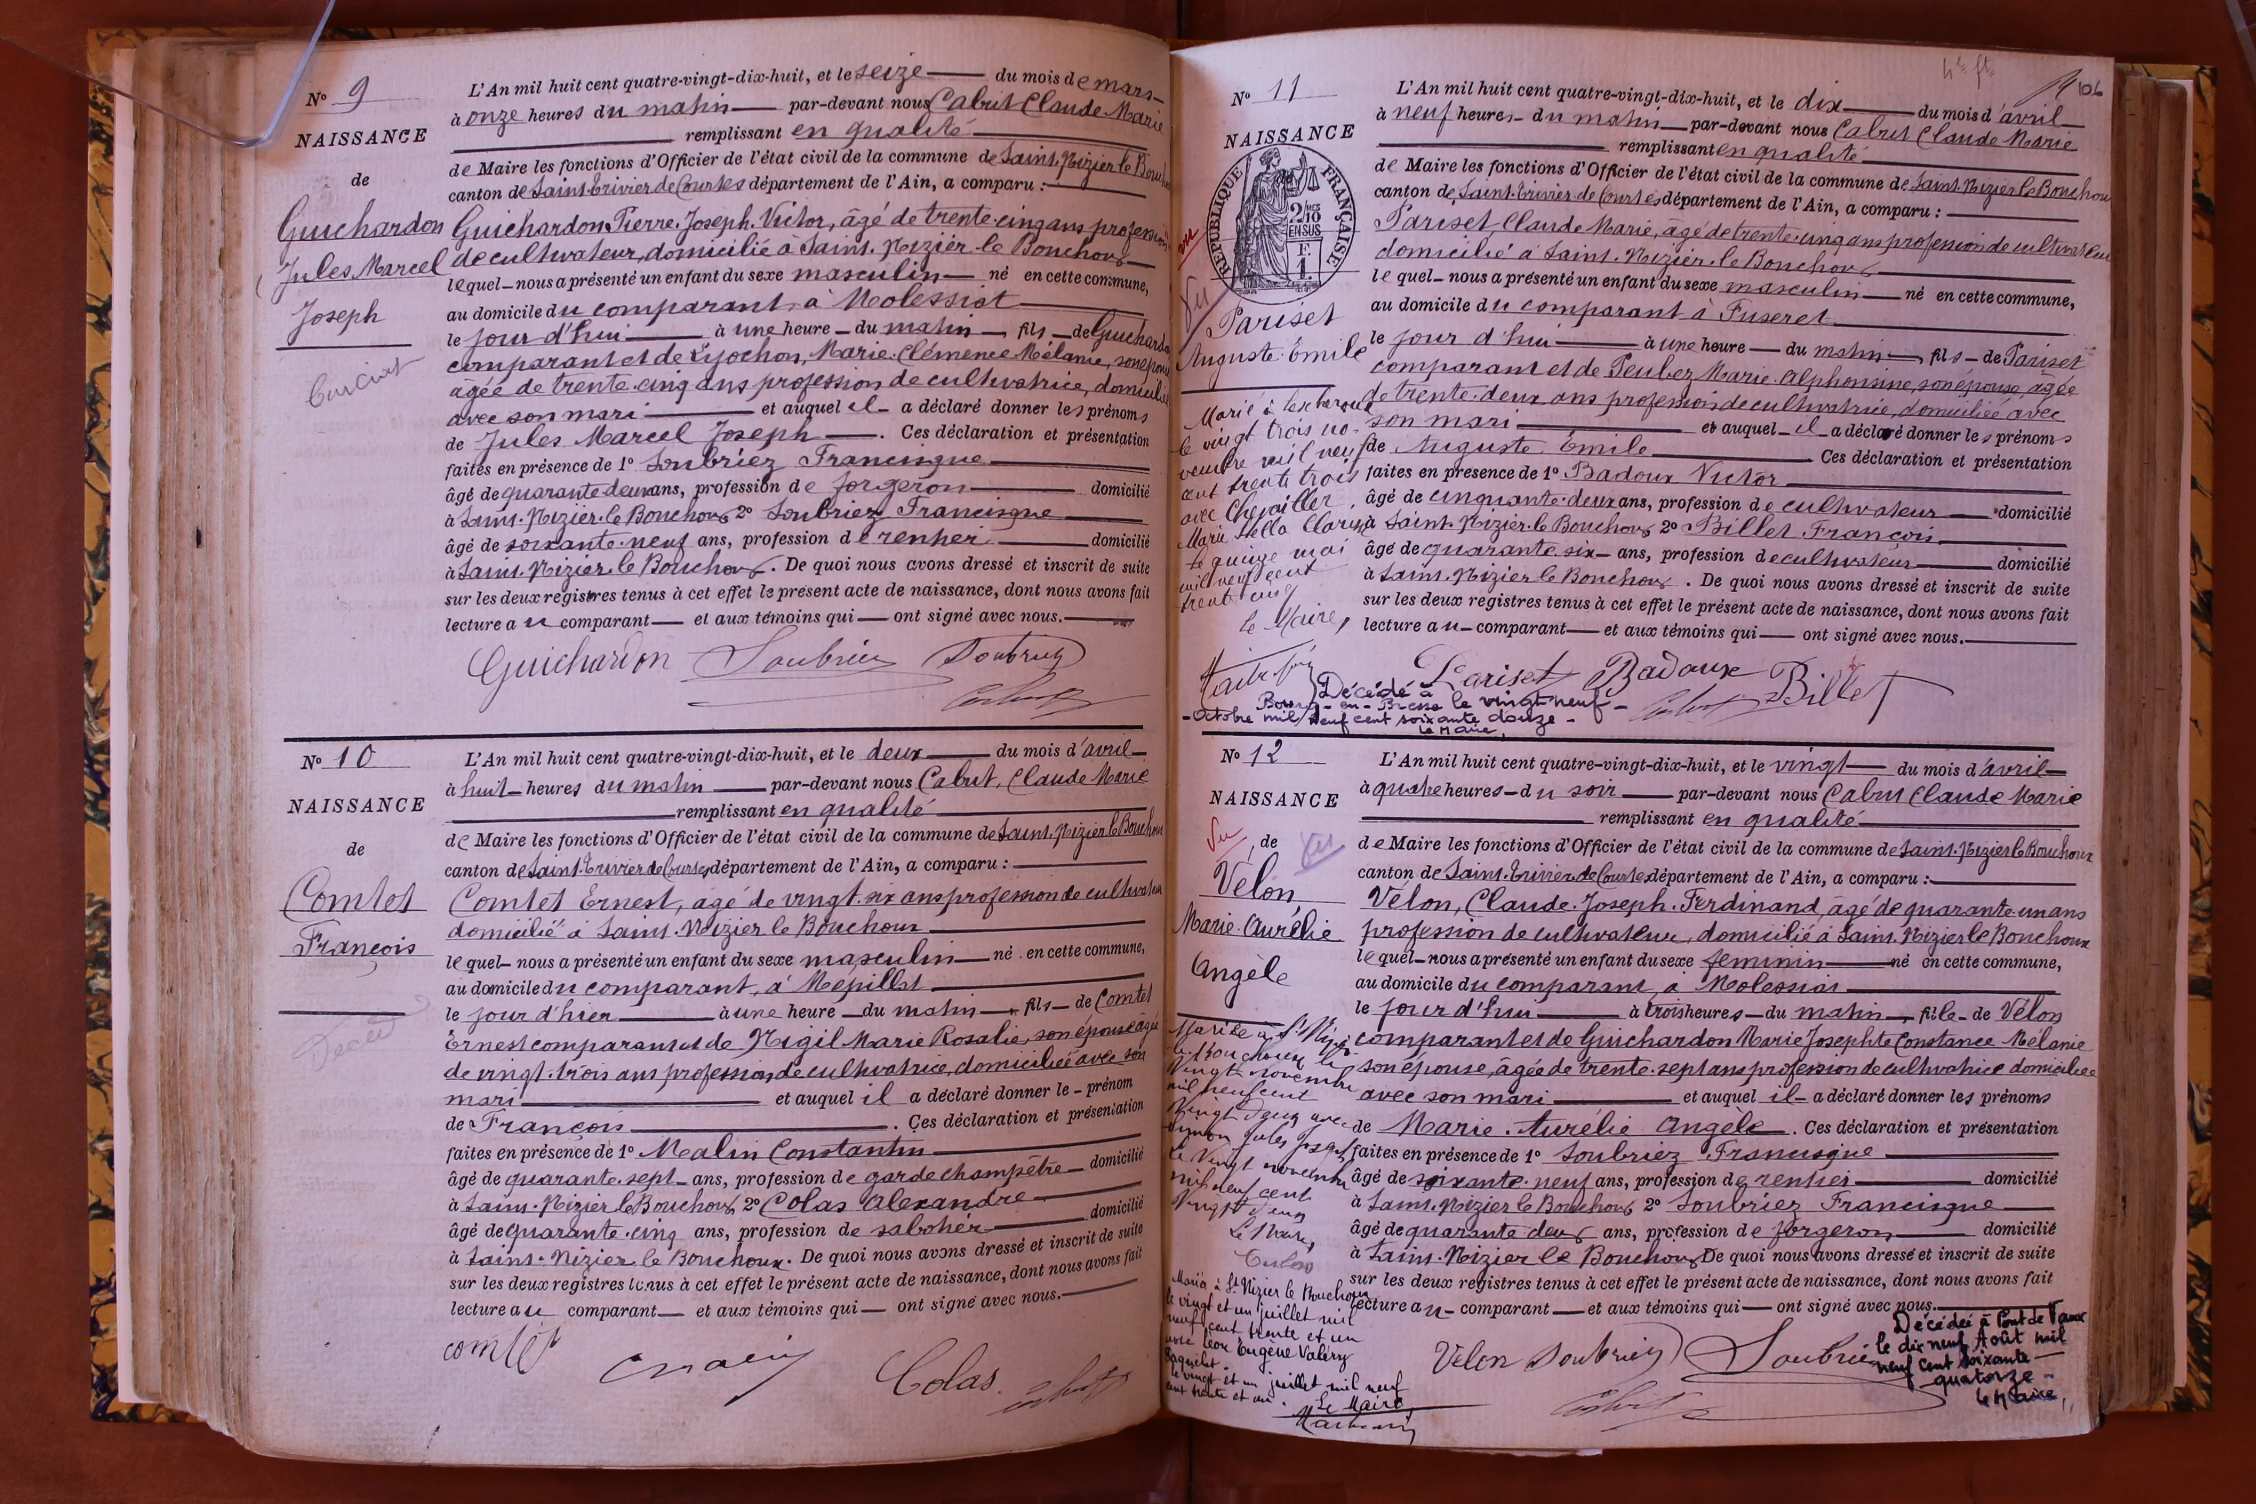 N° 9
NAISSANCE
de
Guichardon
Jules Marcel
Joseph
L'An mil huit cent quatre-vingt-dix-huit, et le seize du mois de mars
à onze heures du matin par-devant nous Cabut Claude Marie
remplissant en qualité
de Maire les fonctions d'Officier de l'état civil de la commune de Saint-Nizier le Bouchoux
canton de Saint-Trivier de Courtes département de l'Ain, a comparu :
Guichardon Pierre Joseph Victor, âgé de trente-cinq ans profession
de cultivateur, domicilié à Saint-Nizier le Bouchoux
lequel nous a présenté un enfant du sexe masculin né en cette commune,
au domicile du comparant, à Molessiat
le jour d'hui à une heure du matin, fils de Guichardon
comparant et de Lyochon, Marie Clémence Mélanie, son épouse
âgée de trente-cinq ans profession de cultivatrice, domiciliée
avec son mari et auquel il a déclaré donner les prénoms
de Jules Marcel Joseph. Ces déclaration et présentation
faites en présence de 1° Soubriez Francisque
âgé de quarante deux ans, profession de forgeron domicilié
à Saint-Nizier le Bouchoux 2° Soubriez Francisque
âgé de soixante-neuf ans, profession de rentier domicilié
à Saint-Nizier le Bouchoux. De quoi nous avons dressé et inscrit de suite
sur les deux registres tenus à cet effet le présent acte de naissance, dont nous avons fait
lecture au comparant et aux témoins qui ont signé avec nous.
Guichardon Soubriez Soubriez
N° 10
NAISSANCE
de
Comtet
François
Décédé
L'An mil huit cent quatre-vingt-dix-huit, et le deux du mois d'avril
à huit heures du matin par-devant nous Cabut, Claude Marie
remplissant en qualité
de Maire les fonctions d'Officier de l'état civil de la commune de Saint-Nizier le Bouchoux
canton de Saint-Trivier de Courtes département de l'Ain, a comparu :
Comtet Ernest, âgé de vingt-six ans profession de cultivateur
domicilié à Saint-Nizier le Bouchoux
lequel nous a présenté un enfant du sexe masculin né en cette commune,
au domicile du comparant, à Mépillat
le jour d'hier à une heure du matin, fils de Comtet
Ernest comparant et de Nigil Marie Rosalie, son épouse âgée
de vingt-trois ans profession de cultivatrice, domiciliée avec son
mari et auquel il a déclaré donner le prénom
de François. Ces déclaration et présentation
faites en présence de 1° Malin Constantin
âgé de quarante-sept ans, profession de garde champêtre domicilié
à Saint-Nizier le Bouchoux 2° Colas Alexandre
âgé de quarante-cinq ans, profession de sabotier domicilié
à Saint-Nizier le Bouchoux. De quoi nous avons dressé et inscrit de suite
sur les deux registres tenus à cet effet le présent acte de naissance, dont nous avons fait
lecture au comparant et aux témoins qui ont signé avec nous.
comtet Colas
106
N° 11
NAISSANCE
RÉPUBLIQUE FRANÇAISE
2/10 EN SUS
F. 1.
Vu
Pariset
Auguste Émile
L'An mil huit cent quatre-vingt-dix-huit, et le dix du mois d'avril
à neuf heures du matin par-devant nous Cabut Claude Marie
remplissant en qualité
de Maire les fonctions d'Officier de l'état civil de la commune de Saint-Nizier le Bouchoux
canton de Saint-Trivier de Courtes département de l'Ain, a comparu :
Pariset Claude Marie, âgé de trente-cinq ans profession de cultivateur
domicilié à Saint-Nizier le Bouchoux
lequel nous a présenté un enfant du sexe masculin né en cette commune,
au domicile du comparant à Fuseret
le jour d'hui à une heure du matin, fils de Pariset
comparant et de Peubez Marie Alphonsine, son épouse, âgée
de trente-deux ans profession de cultivatrice, domiciliée avec
son mari et auquel il a déclaré donner les prénoms
de Auguste Émile Ces déclaration et présentation
faites en présence de 1° Badoux Victor
âgé de cinquante-deux ans, profession de cultivateur domicilié
à Saint-Nizier le Bouchoux 2° Billet François
âgé de quarante-six ans, profession de cultivateur domicilié
à Saint-Nizier le Bouchoux. De quoi nous avons dressé et inscrit de suite
sur les deux registres tenus à cet effet le présent acte de naissance, dont nous avons fait
lecture au comparant et aux témoins qui ont signé avec nous.
Marié à Lescheroux
le vingt trois no-
vembre mil neuf
cent trente trois
avec Chevaillier
Marie Stella Clarisse
le quinze mai
mil neuf cent
trente cinq
le Maire,
Pariset Badoux Billet
Décédé à
Bourg-en-Bresse le vingt-neuf
Octobre mil neuf cent soixante douze
Le Maire,
N° 12
NAISSANCE
Vu de Vu
Vélon
Marie Aurélie
Angèle
L'An mil huit cent quatre-vingt-dix-huit, et le vingt du mois d'avril
à quatre heures du soir par-devant nous Cabut Claude Marie
remplissant en qualité
de Maire les fonctions d'Officier de l'état civil de la commune de Saint-Nizier le Bouchoux
canton de Saint-Trivier de Courtes département de l'Ain, a comparu :
Vélon, Claude Joseph Ferdinand, âgé de quarante un ans
profession de cultivateur, domicilié à Saint-Nizier le Bouchoux
lequel nous a présenté un enfant du sexe féminin né en cette commune,
au domicile du comparant, à Molessiat
le jour d'hui à trois heures du matin, fille de Vélon
comparant et de Guichardon Marie Josephte Constance Mélanie
son épouse, âgée de trente-sept ans profession de cultivatrice domiciliée
avec son mari et auquel il a déclaré donner les prénoms
de Marie Aurélie Angèle. Ces déclaration et présentation
faites en présence de 1° Soubriez Francisque
âgé de soixante-neuf ans, profession de rentier domicilié
à Saint-Nizier le Bouchoux 2° Soubriez Francisque
âgé de quarante deux ans, profession de forgeron domicilié
à Saint-Nizier le Bouchoux De quoi nous avons dressé et inscrit de suite
sur les deux registres tenus à cet effet le présent acte de naissance, dont nous avons fait
lecture au comparant et aux témoins qui ont signé avec nous.
Mariée à St Nizier
le Bouchoux le
vingt novembre
mil neuf cent
vingt deux avec
Jules Joseph
le vingt novembre
mil neuf cent
vingt deux
Le Maire,
Marié à St Nizier le Bouchoux
le vingt et un juillet mil
neuf cent trente et un
avec Léon Eugène Valéry
Paquelet.
le vingt et un juillet mil neuf
cent trente et un.
Le Maire,
Velon Soubriez Soubriez
Décédée à Pont de Vaux
le dix neuf Août mil
neuf cent soixante
quatorze
Le Maire,